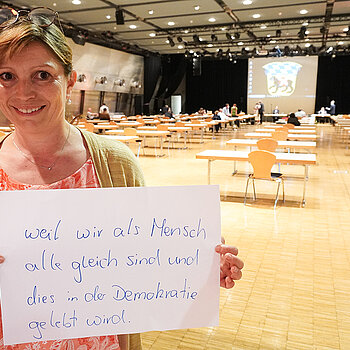 weil wir als Mensch
alle gleich sind und
dies in der Demokratie
gelebt wird.